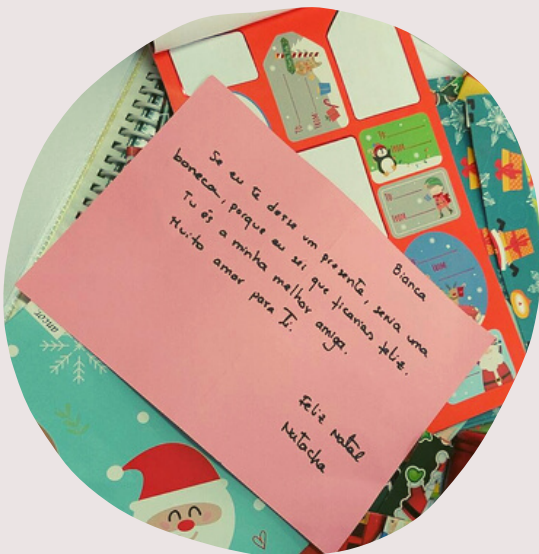 Bianca
Se eu te desse um presente, seria uma
boneca, porque eu sei que ficarias feliz.
Tu és a minha melhor amiga.
Muito amor para Ti.
Feliz Natal
Natacha
ancor
To
From
To
From